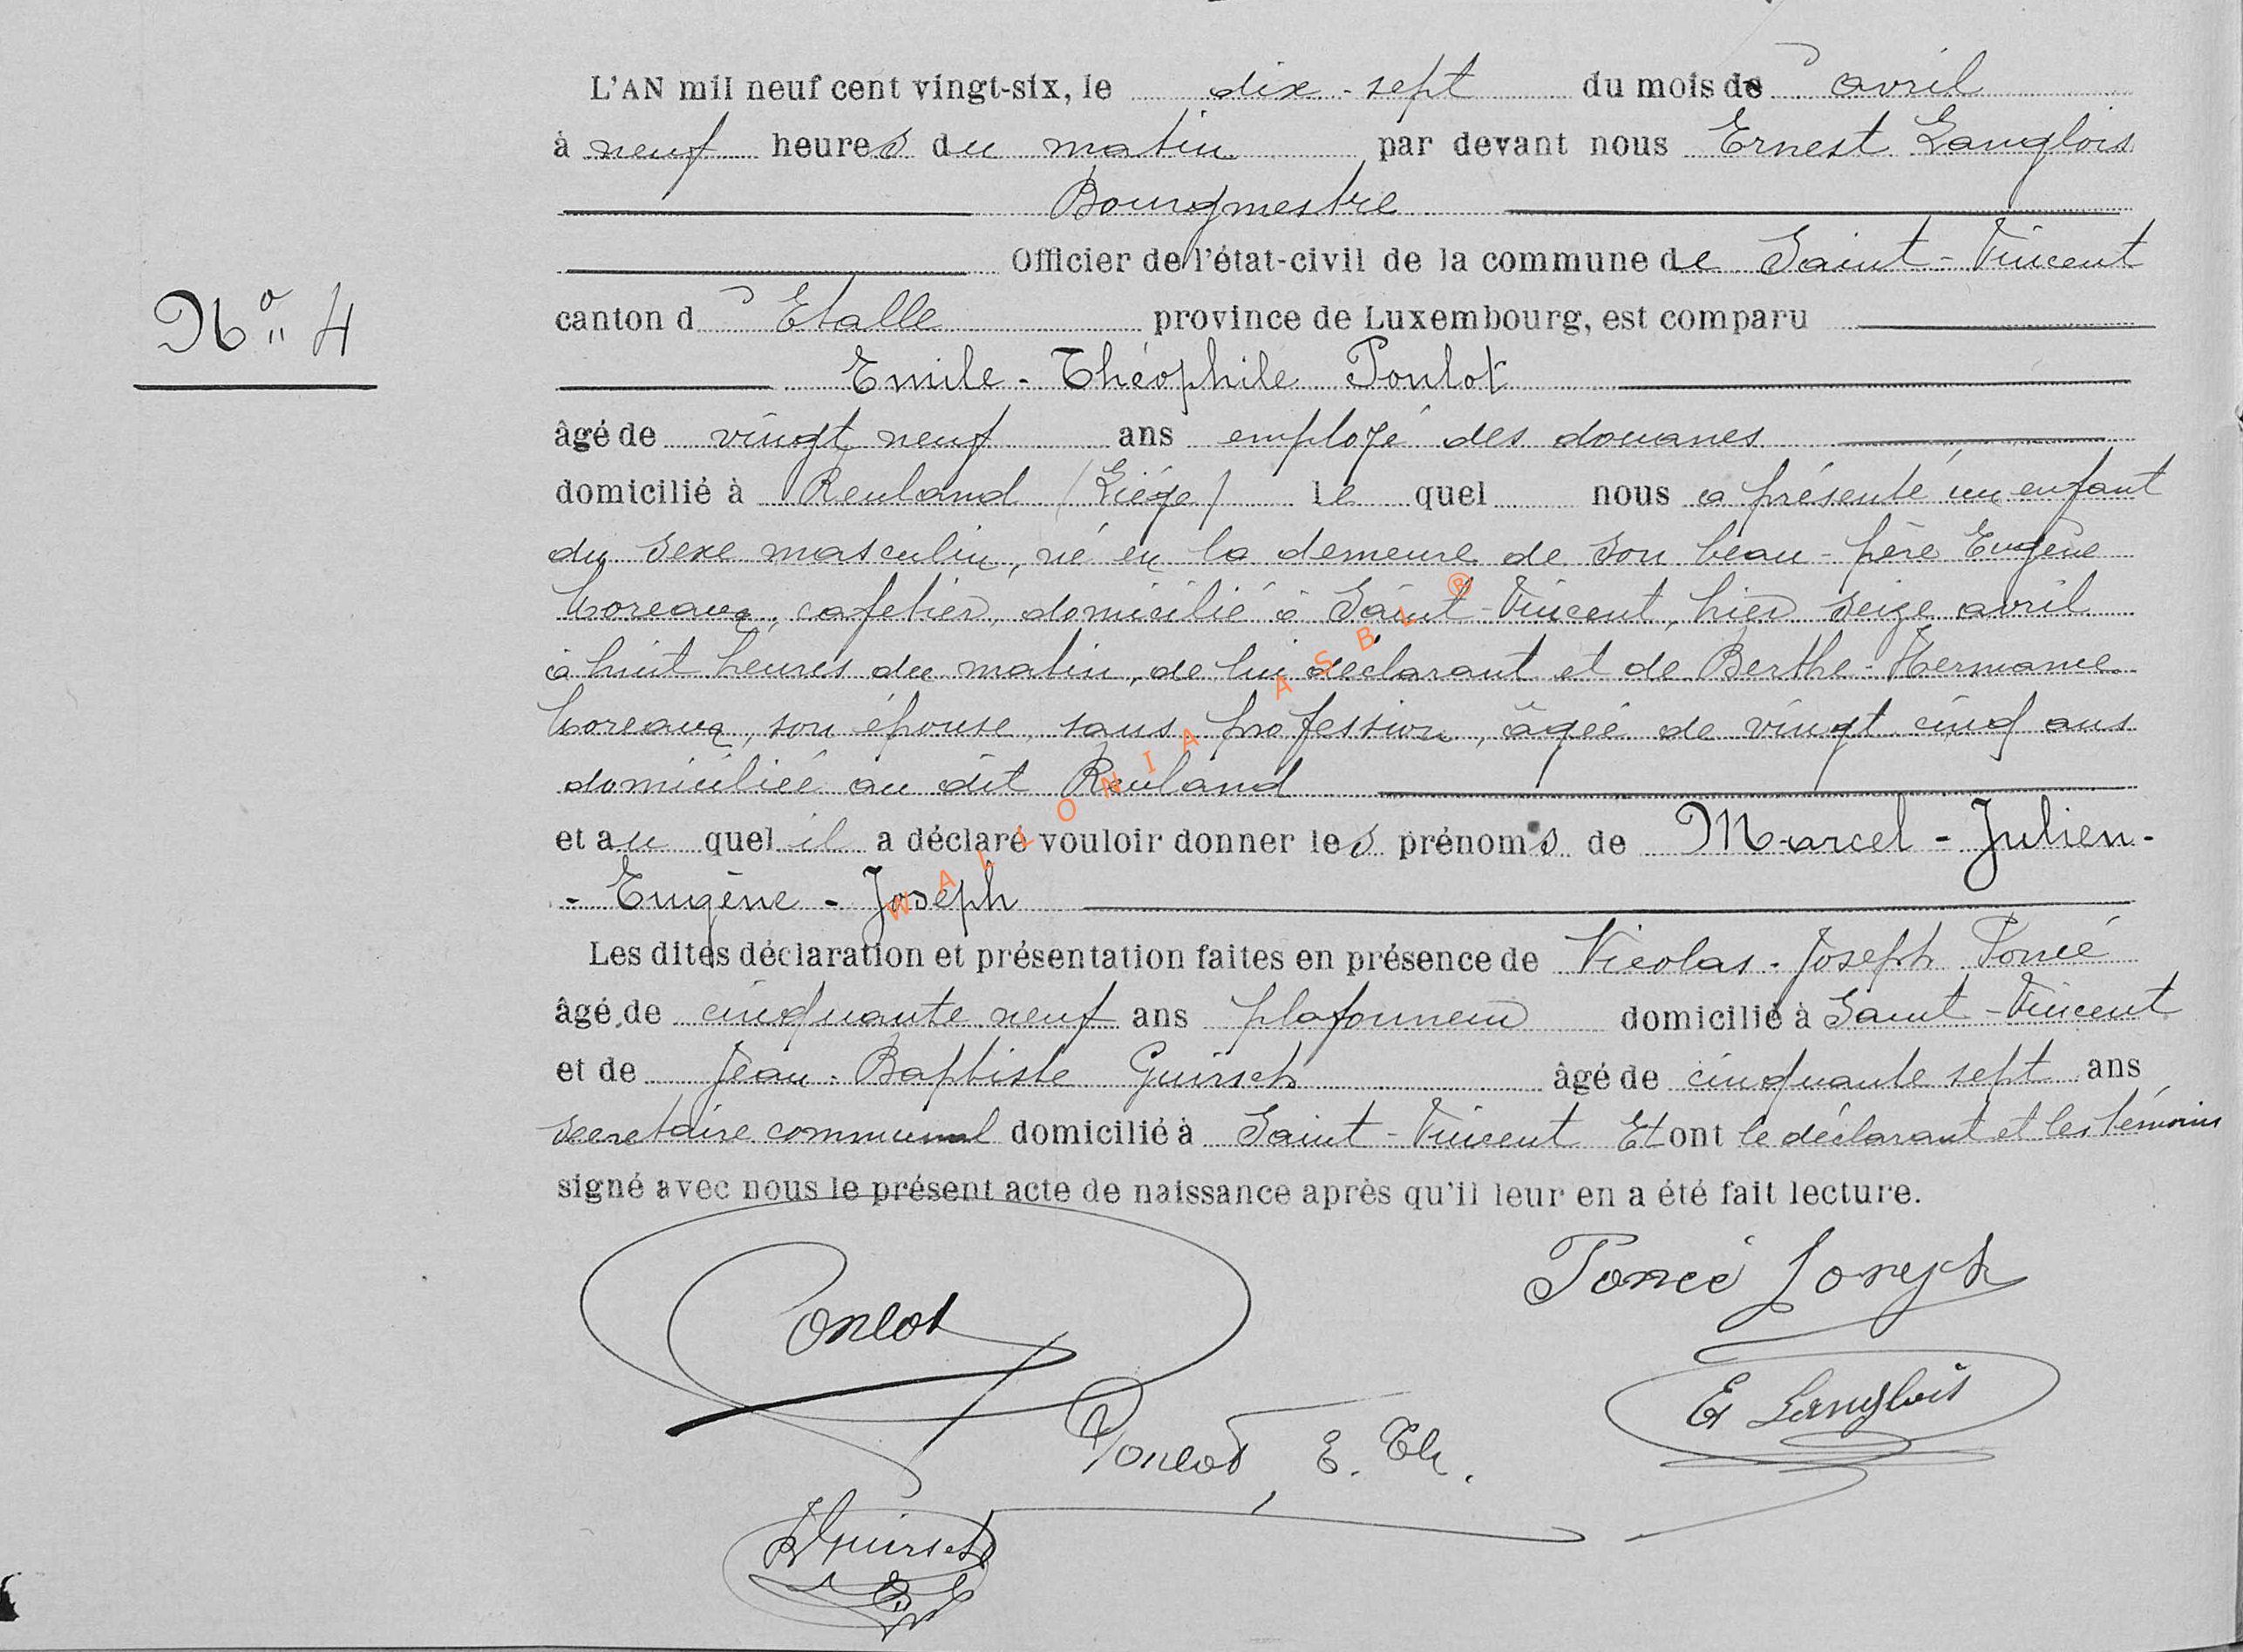 L'AN mil neuf cent vingt-six, le dix-sept du mois d' avril
à neuf heures du matin par devant nous Ernest Langlois
Bourgmestre
Officier de l'état-civil de la commune de Saint-Vincent
canton d' Etalle province de Luxembourg, est comparu
Nº 4
Emile-Théophile Poulot
âgé de vingt neuf ans employé des douanes
domicilié à Reuland (Liége) le quel nous a présenté un enfant
du sexe masculin, né en la demeure de son beau-père Eugène
Moreaux, cafetier, domicilié à Saint-Vincent, hier seize avril
à huit heures du matin, de lui déclarant et de Berthe-Hermance
Moreaux, son épouse, sans profession, âgée de vingt cinq ans
domiciliée au dit Reuland
et au quel il a déclaré vouloir donner les prénoms de Marcel-Julien-
-Eugène-Joseph
Les dites déclaration et présentation faites en présence de Nicolas-Joseph Poncé
âgé de cinquante neuf ans plafonneur domicilié à Saint-Vincent
et de Jean-Baptiste Guirsch âgé de cinquante sept ans
secrétaire communal domicilié à Saint-Vincent Et ont le déclarant et les témoins
signé avec nous le présent acte de naissance après qu'il leur en a été fait lecture.
Poncé Joseph
E Langlois
E. Th.
Guirsch
WALLONIA ASBL ®